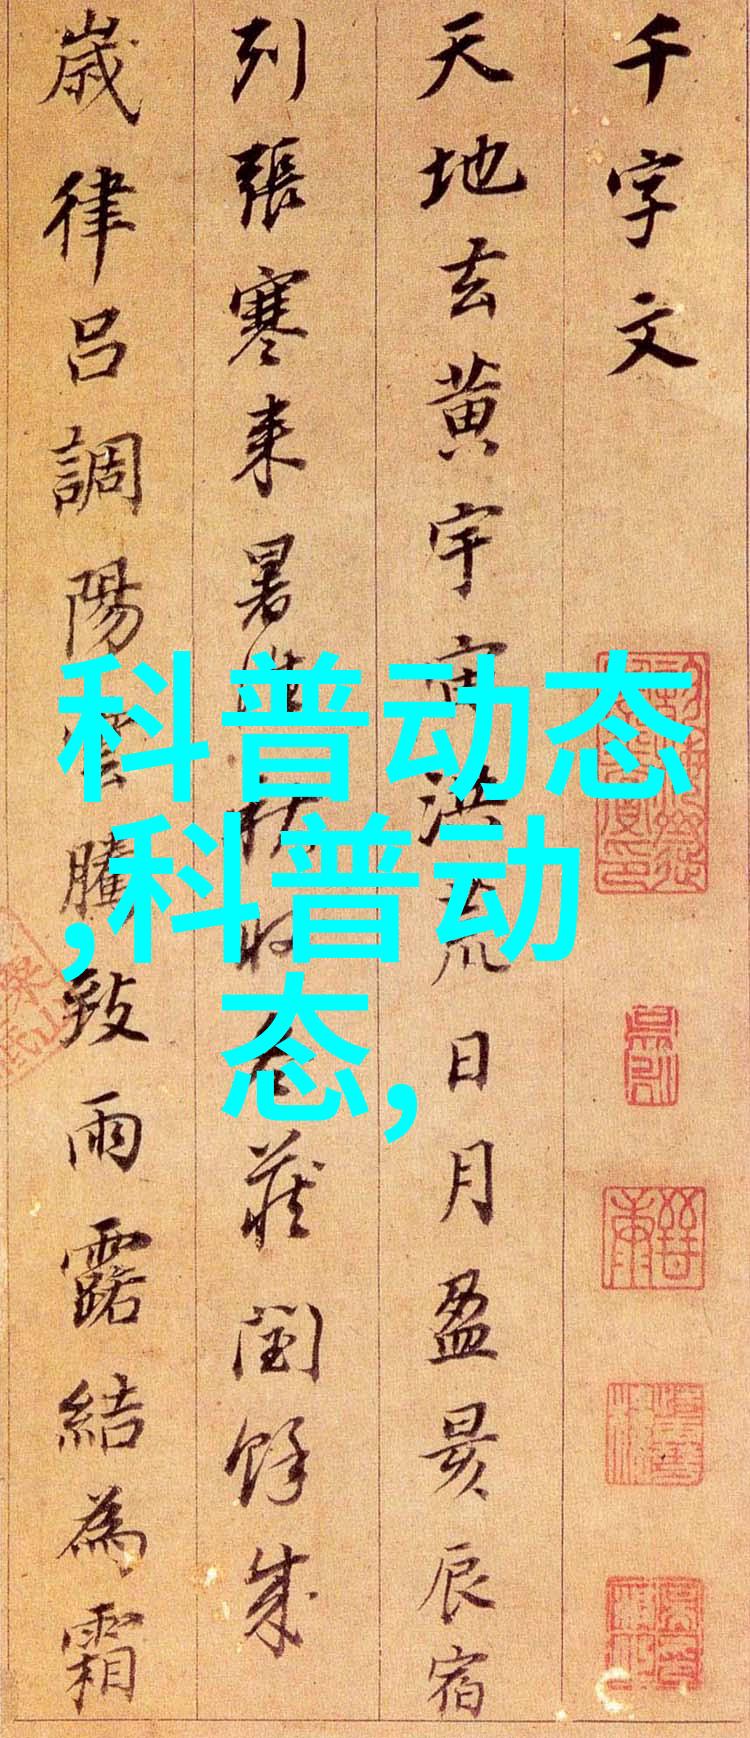 千字文
天地玄黄宇宙洪荒日月盈昃辰宿
列張寒来暑往秋收冬蔵閏餘成
歳律呂調陽雲騰致雨露結為霜
科普动态
,科普动
态,